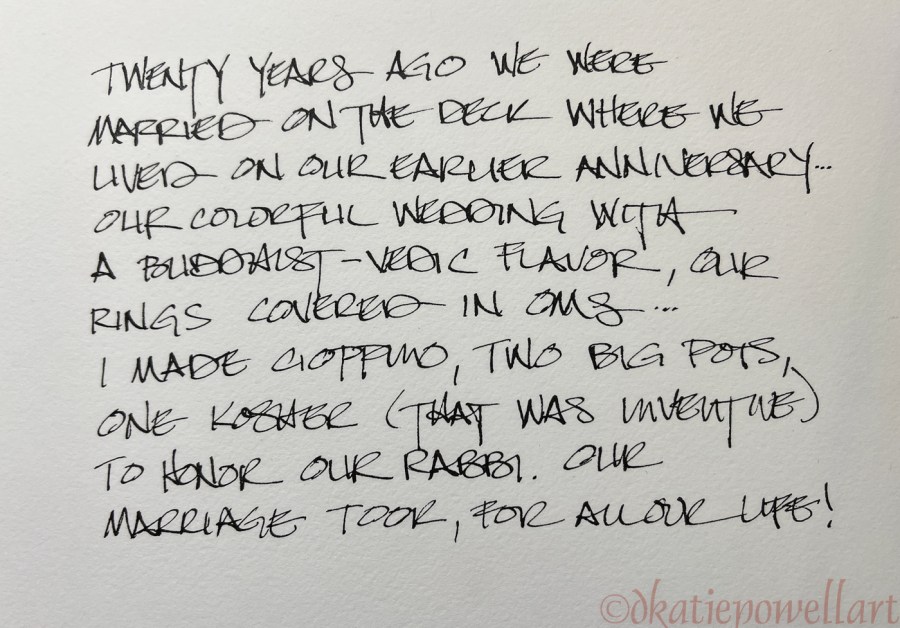 TWENTY YEARS AGO WE WERE
MARRIED ON THE DECK WHERE WE
LIVED ON OUR EARLIER ANNIVERSARY...
OUR COLORFUL WEDDING WITH
A BUDDHIST-VEDIC FLAVOR, OUR
RINGS COVERED IN OMS...
I MADE CIOPPINO, TWO BIG POTS,
ONE KOSHER (THAT WAS INVENTIVE)
TO HONOR OUR RABBI. OUR
MARRIAGE TOOK, FOR ALL OUR LIFE!
©dkatiepowellart